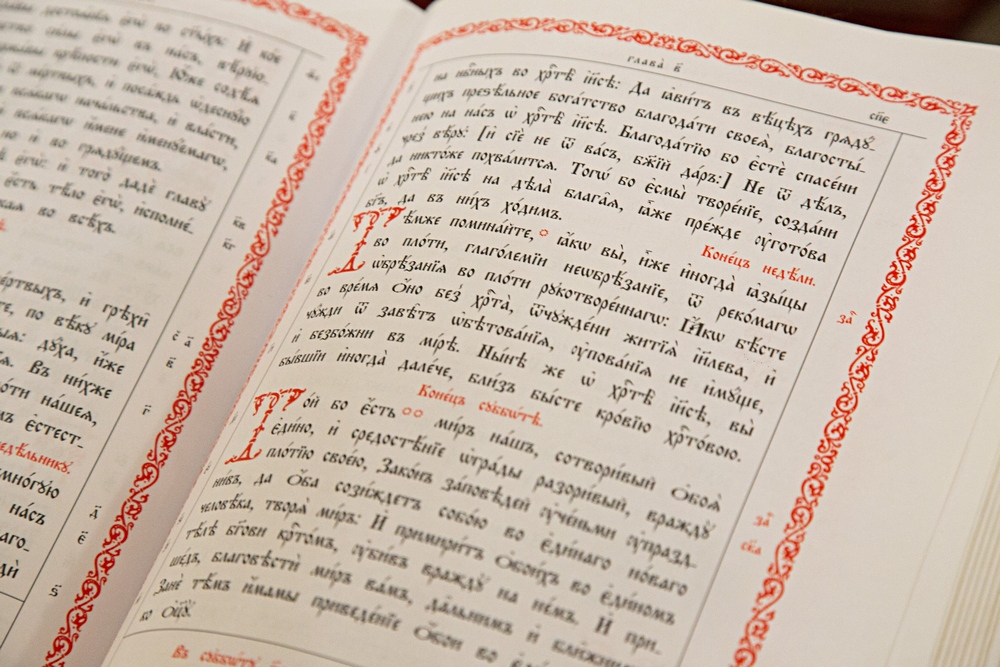 достоинїѧ
во ст҃ы́хъ: И҆ ко́е
є҆гѡ̀ въ на́съ, вѣ́рꙋ
крѣ́пости є҆гѡ̀, Ю҆́же содѣ́ѧ
ме́ртвыхъ, и҆ посадѝ ѡ҆деснꙋ́ю
нача́льства, и҆ вла́сти,
и҆́мене и҆менꙋ́емагѡ,
но и҆ во грѧдꙋ́щемъ.
є҆гѡ̀: и҆ того̀ дадѐ главꙋ̀
є҆́сть тѣ́ло є҆гѡ̀, и҆сполне́_
во всѣ́хъ.
ме́ртвыхъ, и҆ грѣхѝ
по вѣ́кꙋ мі́ра
дꙋ́ха, и҆́же
Въ ни́хже
пло́ти на́шеѧ,
є҆стест_
мно́гꙋю
на́съ
глава̀ в҃
сп҃є
на нб҃ныхъ во хрⷭ҇тѣ̀ і҆и҃сѣ: Да ꙗ҆ви́тъ въ вѣ́цѣхъ грѧдꙋ́_
щихъ презѣ́льное бога́тство благода́ти своеѧ̀, благосты́_
нею на на́съ ѡ҆ хрⷭ҇тѣ̀ і҆и҃сѣ. Благода́тїю бо є҆стѐ спасе́ни
чрез̾ вѣ́рꙋ: [и҆ сїѐ не ѿ ва́съ, бж҃їй да́ръ:] Не ѿ дѣ́лъ,
да никто́же похва́литсѧ. Тогѡ̀ бо є҆смы̀ творе́нїе, со́здани
ѡ҆ хрⷭ҇тѣ̀ і҆и҃сѣ на дѣла̀ блага̑ѧ, ꙗ҆̀же пре́жде ᲂу҆гото́ва
бг҃ъ, да въ ни́хъ хо́димъ.
Коне́цъ недѣ́ли.
Тѣ́мже помина́йте, ꙗ҆́кѡ вы̀, и҆̀же и҆ногда̀ ꙗ҆зы́цы
во пло́ти, глаго́лемїи неѡбрѣ́занїе, ѿ реко́магѡ
ѡ҆брѣ́занїѧ во пло́ти рꙋкотворе́ннагѡ: Ꙗ҆́кѡ бѣ́сте
во вре́мѧ ѻ҆́но без̾ хрⷭ҇та̀, ѿчꙋжде́ни житїѧ̀ і҆и҃лева, и҆
чꙋ́жди ѿ завѣ̑тъ ѡ҆бѣтова́нїѧ, ᲂу҆пова́нїѧ не и҆мꙋ́ще,
и҆ безбо́жни въ мі́рѣ. Ны́нѣ же ѡ҆ хрⷭ҇тѣ̀ і҆и҃сѣ, вы̀
бы́вшїи и҆ногда̀ дале́че, бли́з̾ бы́сте кро́вїю хрⷭ҇то́вою.
Коне́цъ сꙋббѡ́тѣ.
То́й бо є҆́сть ми́ръ на́шъ, сотвори́вый ѻ҆боѧ̑
є҆ди́но, и҆ средостѣ́нїе ѡ҆гра́ды разори́вый, враждꙋ̀
пло́тїю свое́ю, Зако́нъ за́повѣдей ᲂу҆че́ньми ᲂу҆празд_
ни́въ, да ѻ҆́ба сози́ждетъ собо́ю во є҆ди́наго но́ваго
человѣ́ка, творѧ̀ ми́ръ: И҆ примири́тъ ѻ҆бои́хъ во є҆ди́номъ
тѣ́лѣ бг҃ови крⷭ҇то́мъ, ᲂу҆би́въ враждꙋ̀ на не́мъ. И҆ при_
ше́дъ, благовѣстѝ ми́ръ ва́мъ, да́льнимъ и҆ бли́жнимъ
Занѐ тѣ́мъ и҆́мамы приведе́нїе ѻ҆́бои во є҆ди́
ко ѻ҆ц҃ꙋ̀.
Въ сꙋббѡ́тꙋ